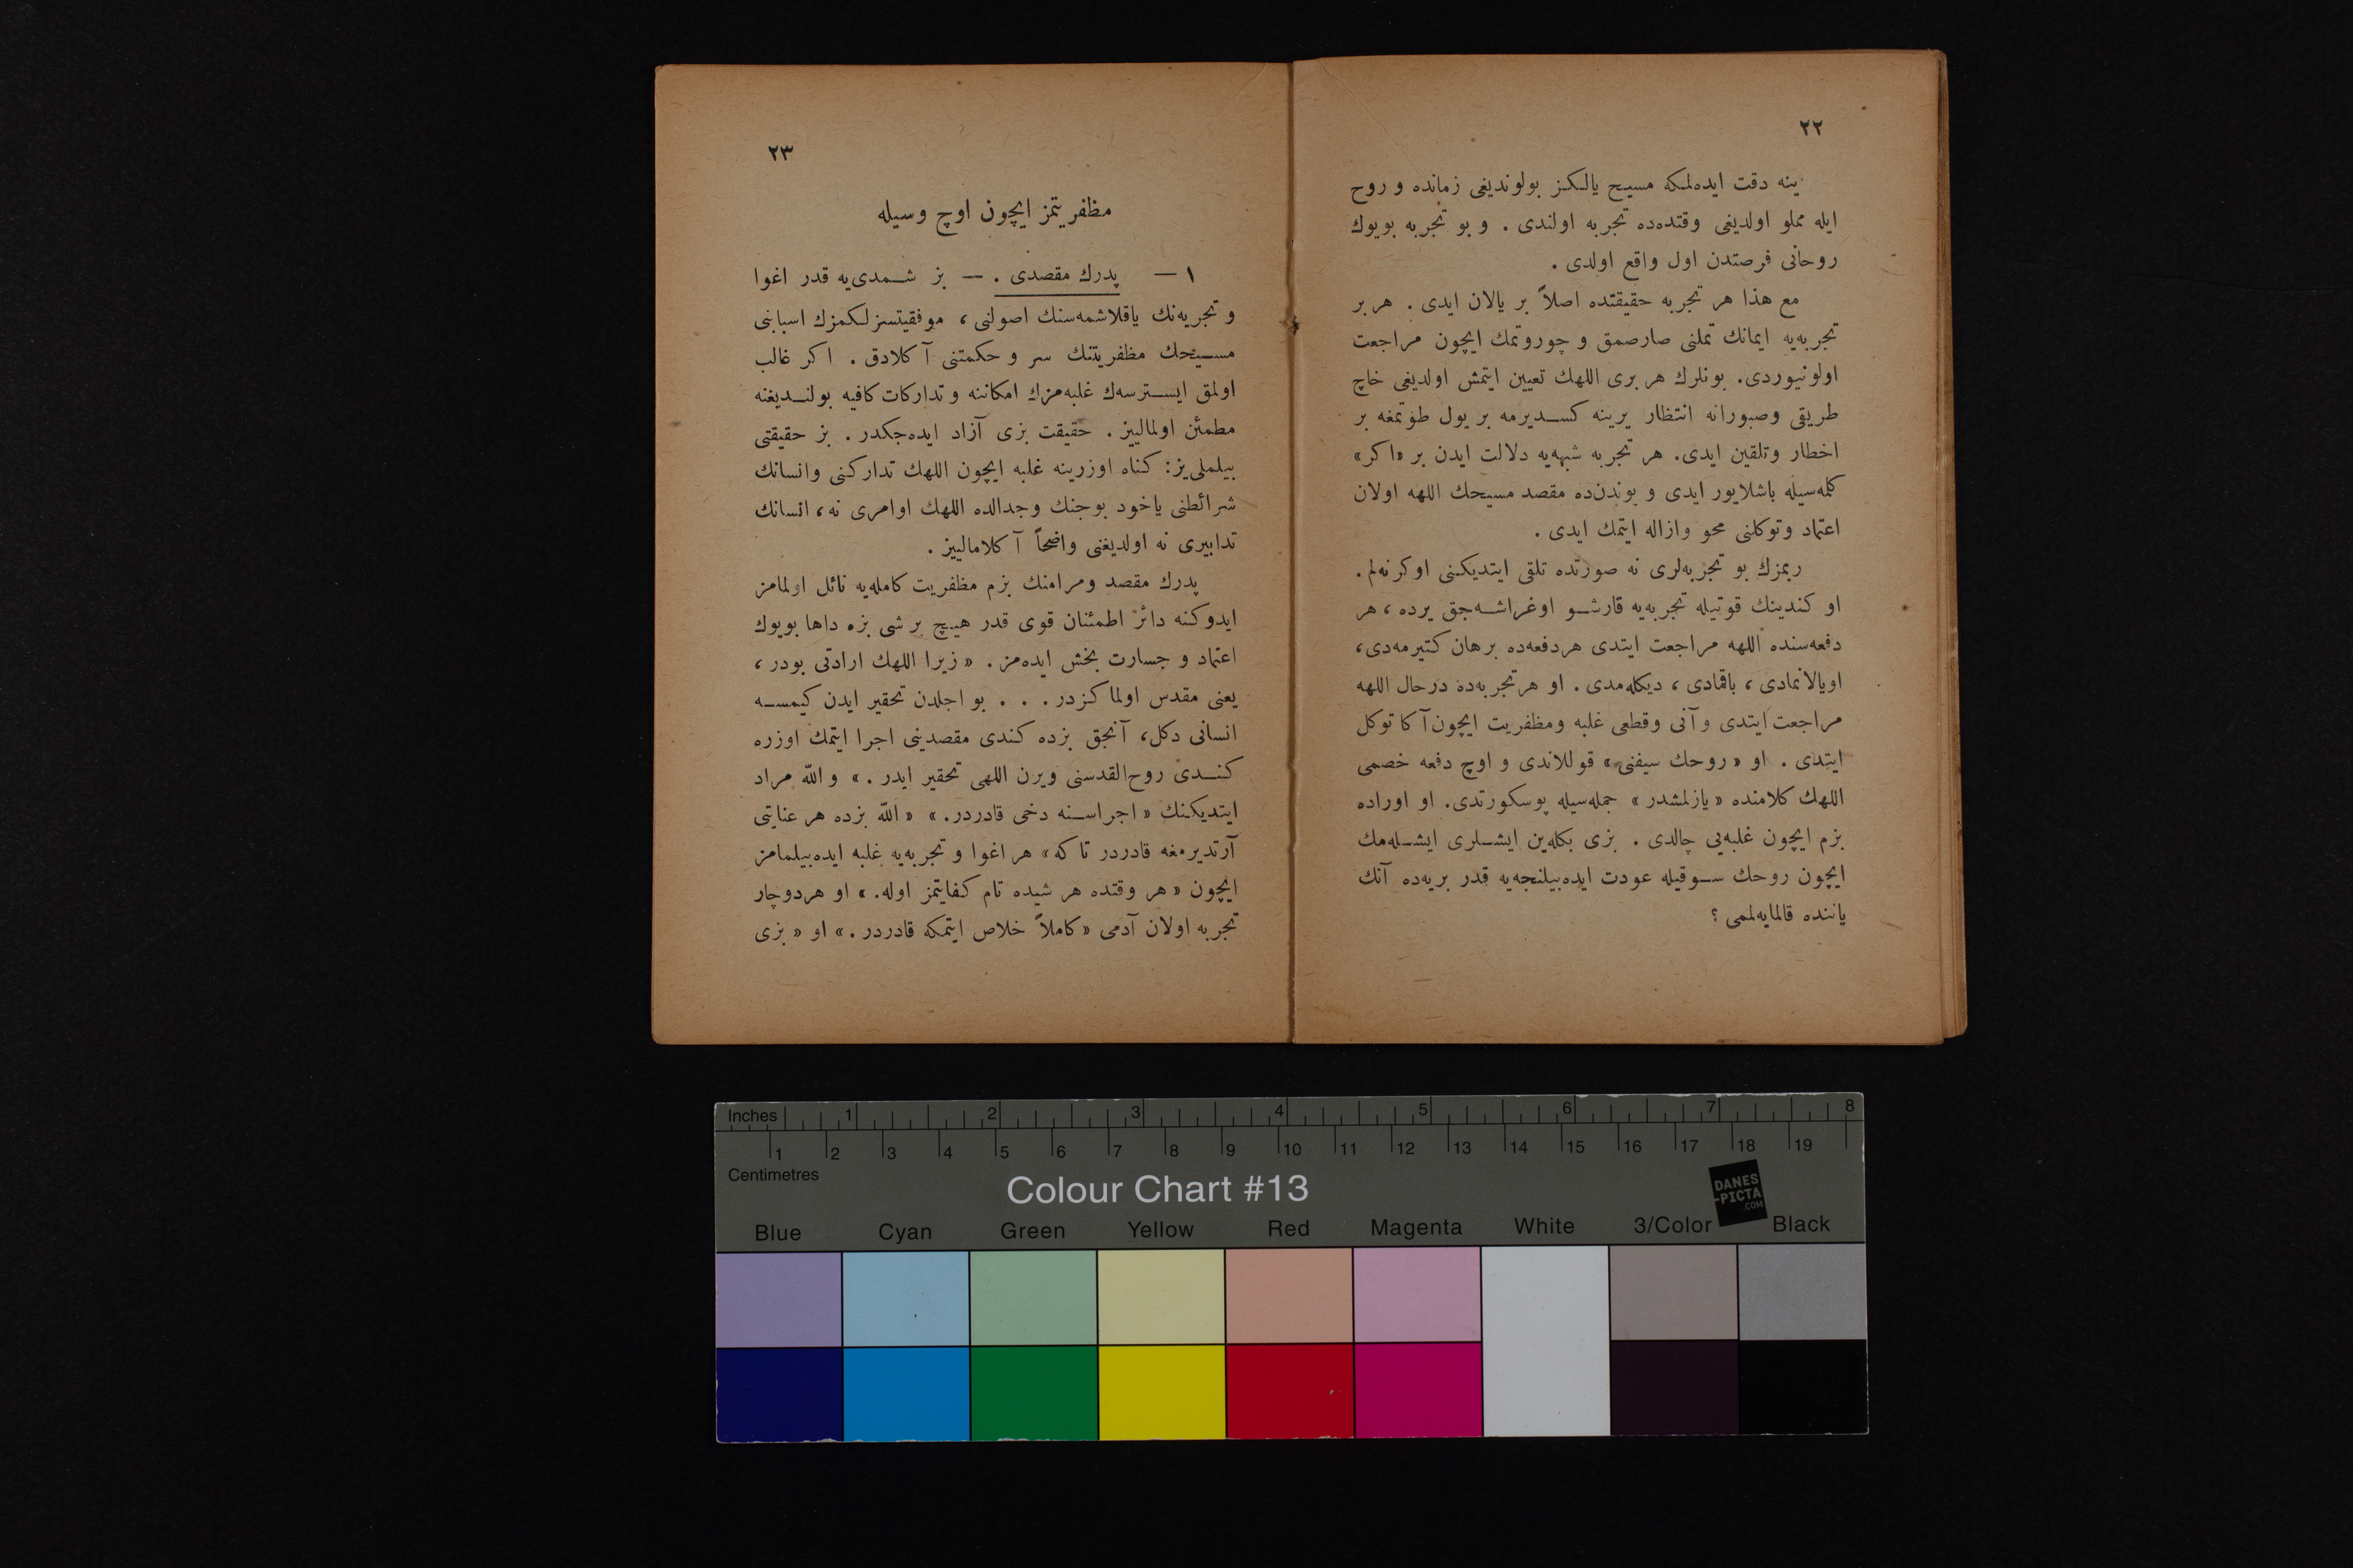 ٢٢
ينه دقت ايده‌لمكه مسيح يالكز بولونديغى زمانده و روح
ايله مملو اولديغى وقتده‌ده تجربه اولندى . و بو تجربه بويوك
روحانى فرصتدن اول واقع اولدى .
مع هذا هر تجربه حقيقتده اصلاً بر يالان ايدى . هر بر
تجربه‌يه ايمانك تملنى صارصمق و چوروتمك ايچون مراجعت
اولونيوردى. بونلرك هر برى اللهك تعيين ايتمش اولديغى خاچ
طريقى وصبورانه انتظار يرينه كسديرمه بر يول طوتمغه بر
اخطار وتلقين ايدى. هر تجربه شبهه‌يه دلالت ايدن بر «اكر»
كلمه‌سيله باشلايور ايدى و بوندن‌ده مقصد مسيحك اللهه اولان
اعتماد وتوكلنى محو وازاله ايتمك ايدى .
ربمزك بو تجربه‌لرى نه صورتده تلقى ايتديكنى اوكرنه‌لم .
او كندينك قوتيله تجربه‌يه قارشو اوغراشه‌جق يرده ، هر
دفعه‌سنده اللهه مراجعت ايتدى هردفعه‌ده برهان كتيرمه‌دى،
اويالانمادى ، باقمادى ، ديكله‌مدى . او هر تجربه‌ده درحال اللهه
مراجعت ايتدى و آنى وقطعى غلبه ومظفريت ايچون آكا توكل
ايتدى . او «روحك سيفنى» قوللاندى و اوچ دفعه خصمى
اللهك كلامنده «يازلمشدر» جمله‌سيله پوسكورتدى. او اوراده
بزم ايچون غلبه‌يى چالدى . بزى بكله‌ين ايشلرى ايشله‌مك
ايچون روحك سوقيله عودت ايده‌بيلنجه‌يه قدر بريه‌ده آنك
ياننده قالمايه‌لممى ؟
٢٣
مظفريتمز ايچون اوچ وسيله
١ — پدرك مقصدى . — بز شمدى‌يه قدر اغوا
و تجربه‌نك ياقلاشمه‌سنك اصولنى ، موفقيتسزلكمزك اسبابنى
مسيحك مظفريتنك سر و حكمتنى آكلادق . اكر غالب
اولمق ايسترسه‌ك غلبه‌مزك امكاننه و تداركات كافيه بولنديغنه
مطمئن اولمالييز . حقيقت بزى آزاد ايده‌جكدر . بز حقيقتى
بيلملى‌يز: كناه اوزرينه غلبه ايچون اللهك تداركنى وانسانك
شرائطنى ياخود بوجنك وجدالده اللهك اوامرى نه، انسانك
تدابيرى نه اولديغنى واضحاً آكلامالييز .
پدرك مقصد ومرامنك بزم مظفريت كامله‌يه نائل اولمامز
ايدوكنه دائر اطمئنان قوى قدر هيچ بر شى بزه داها بويوك
اعتماد و جسارت بخش ايده‌مز . «زيرا اللهك ارادتى بودر ،
يعنى مقدس اولماكزدر . . . بو اجلدن تحقير ايدن كيمسه
انسانى دكل، آنجق بزده كندى مقصدينى اجرا ايتمك اوزره
كندى روح‌القدسنى ويرن اللهى تحقير ايدر . » و الله مراد
ايتديكنك «اجراسنه دخى قادردر. » «الله بزده هر عنايتى
آرتديرمغه قادردر تا كه» هر اغوا و تجربه‌يه غلبه ايده‌بيلمامز
ايچون «هر وقتده هر شيده تام كفايتمز اوله. » او هردوچار
تجربه اولان آدمى «كاملاً خلاص ايتمكه قادردر . » او «بزى
Inches 1 2 3 4 5 6 7 8
1 2 3 4 5 6 7 8 9 10 11 12 13 14 15 16 17 18 19
Centimetres
Colour Chart #13
DANES
-PICTA
.COM
Blue Cyan Green Yellow Red Magenta White 3/Color Black